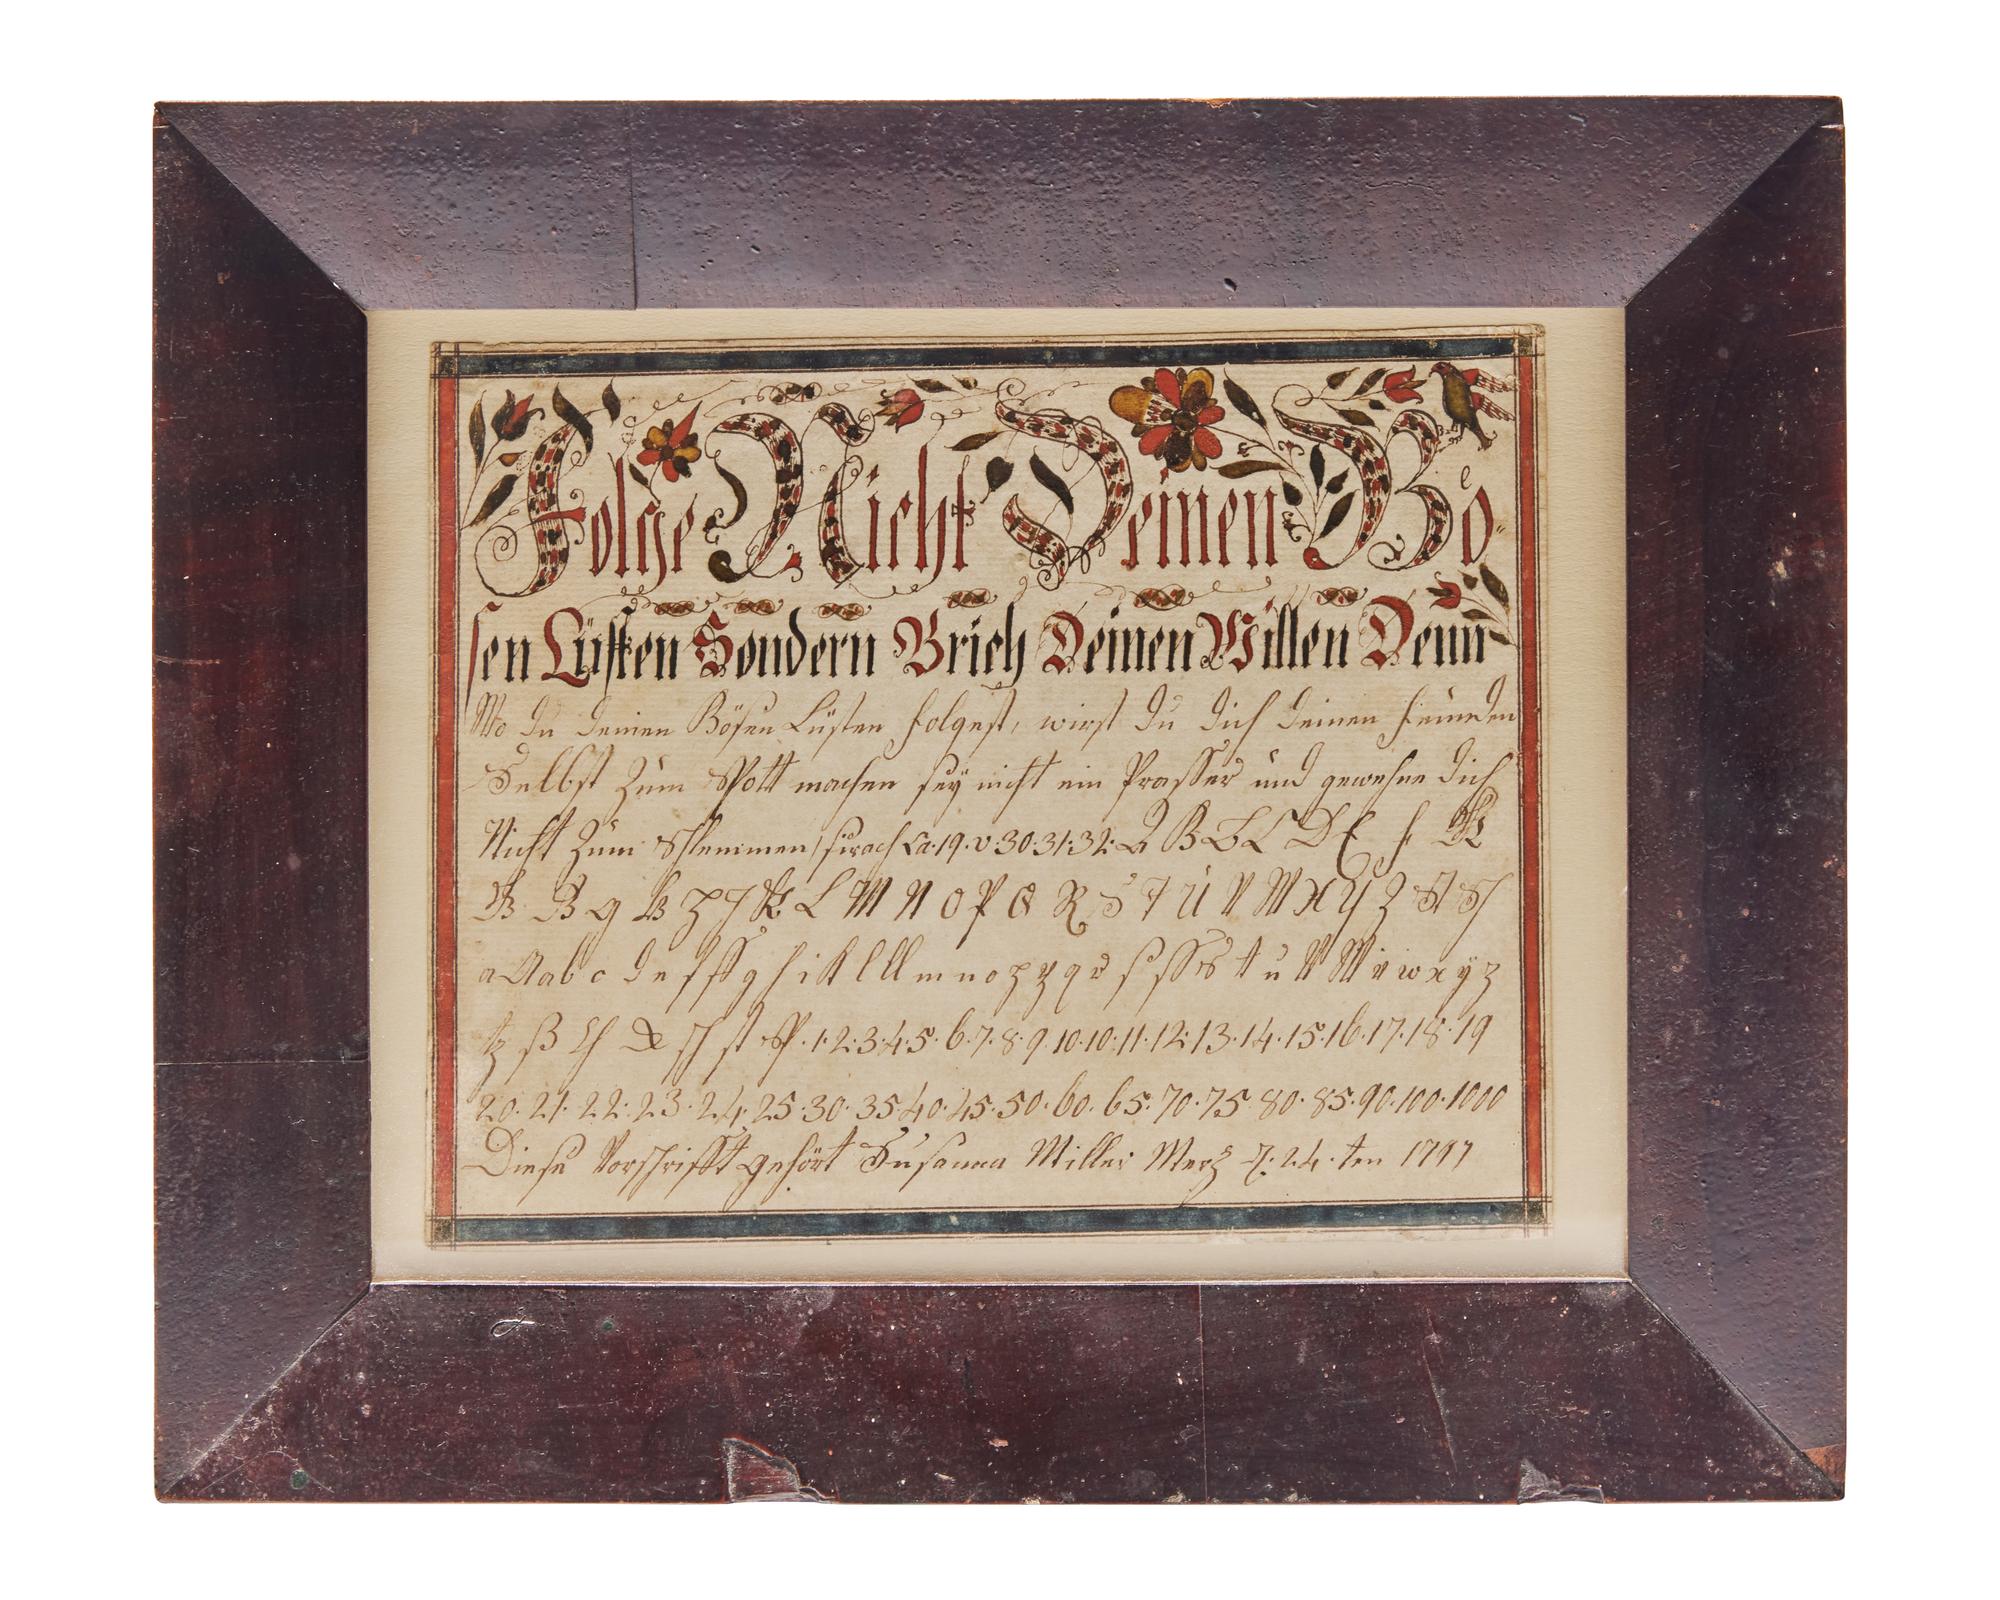 Folge Nicht Deinen Bö-
sen Lüsten Sondern Brich Deinen Willen Denn
Wo du deinen Bösen Lüsten folgest, wirst du dich deinen feinden
Selbst zum Spott machen sey nicht ein Prasser und gewehne dich
Nicht zum schlemmen / sirach Ca. 19. v. 30. 31. 32. A B C D E F
L M N O P Q R S T U V W X Y Z St Sch
a a b c d e f ff g h i k l ll m n o p q r s ss t u v w x y z
tz ß ch sch st Sp. 1. 2. 3. 4. 5. 6. 7. 8. 9. 10. 10. 11. 12. 13. 14. 15. 16. 17. 18. 19
20. 21. 22. 23. 24. 25. 30. 35. 40. 45. 50. 60. 65. 70. 75. 80. 85. 90. 100. 1000
Diese Vorschrifft gehört Susanna Miller Merz 24. ten 1797